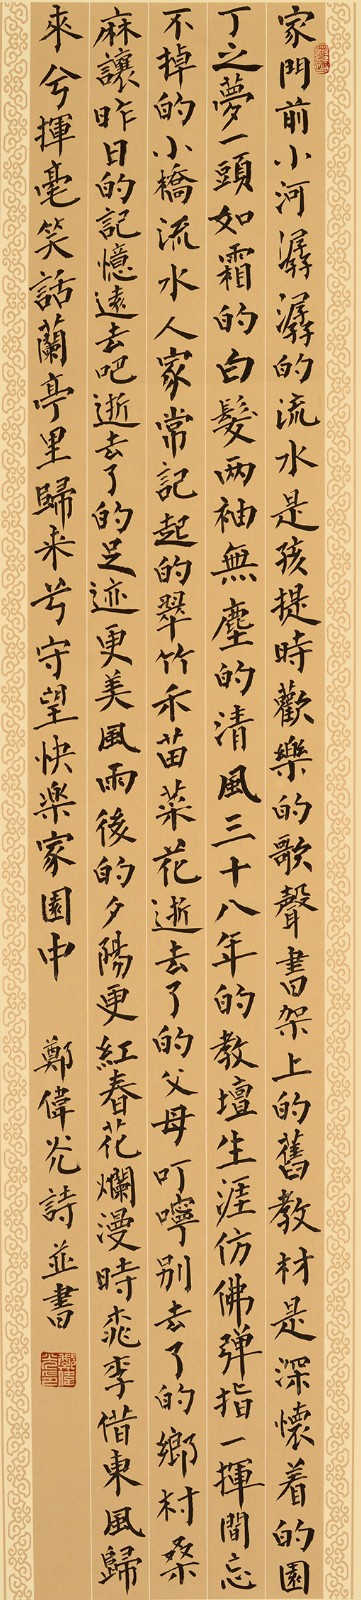 家門前小河潺潺的流水是孩提時歡樂的歌聲書架上的舊教材是深懷着的園
丁之夢一頭如霜的白髮两袖無塵的清風三十八年的教壇生涯仿佛弹指一揮間忘
不掉的小橋流水人家常記起的翠竹禾苗菜花逝去了的父母叮嚀别去了的鄉村桑
麻讓昨日的記憶遠去吧逝去了的足迹更美風雨後的夕陽更紅春花爛漫時桃李借東風歸
來兮揮毫笑話蘭亭里歸来兮守望快樂家園中
鄭偉光詩並書